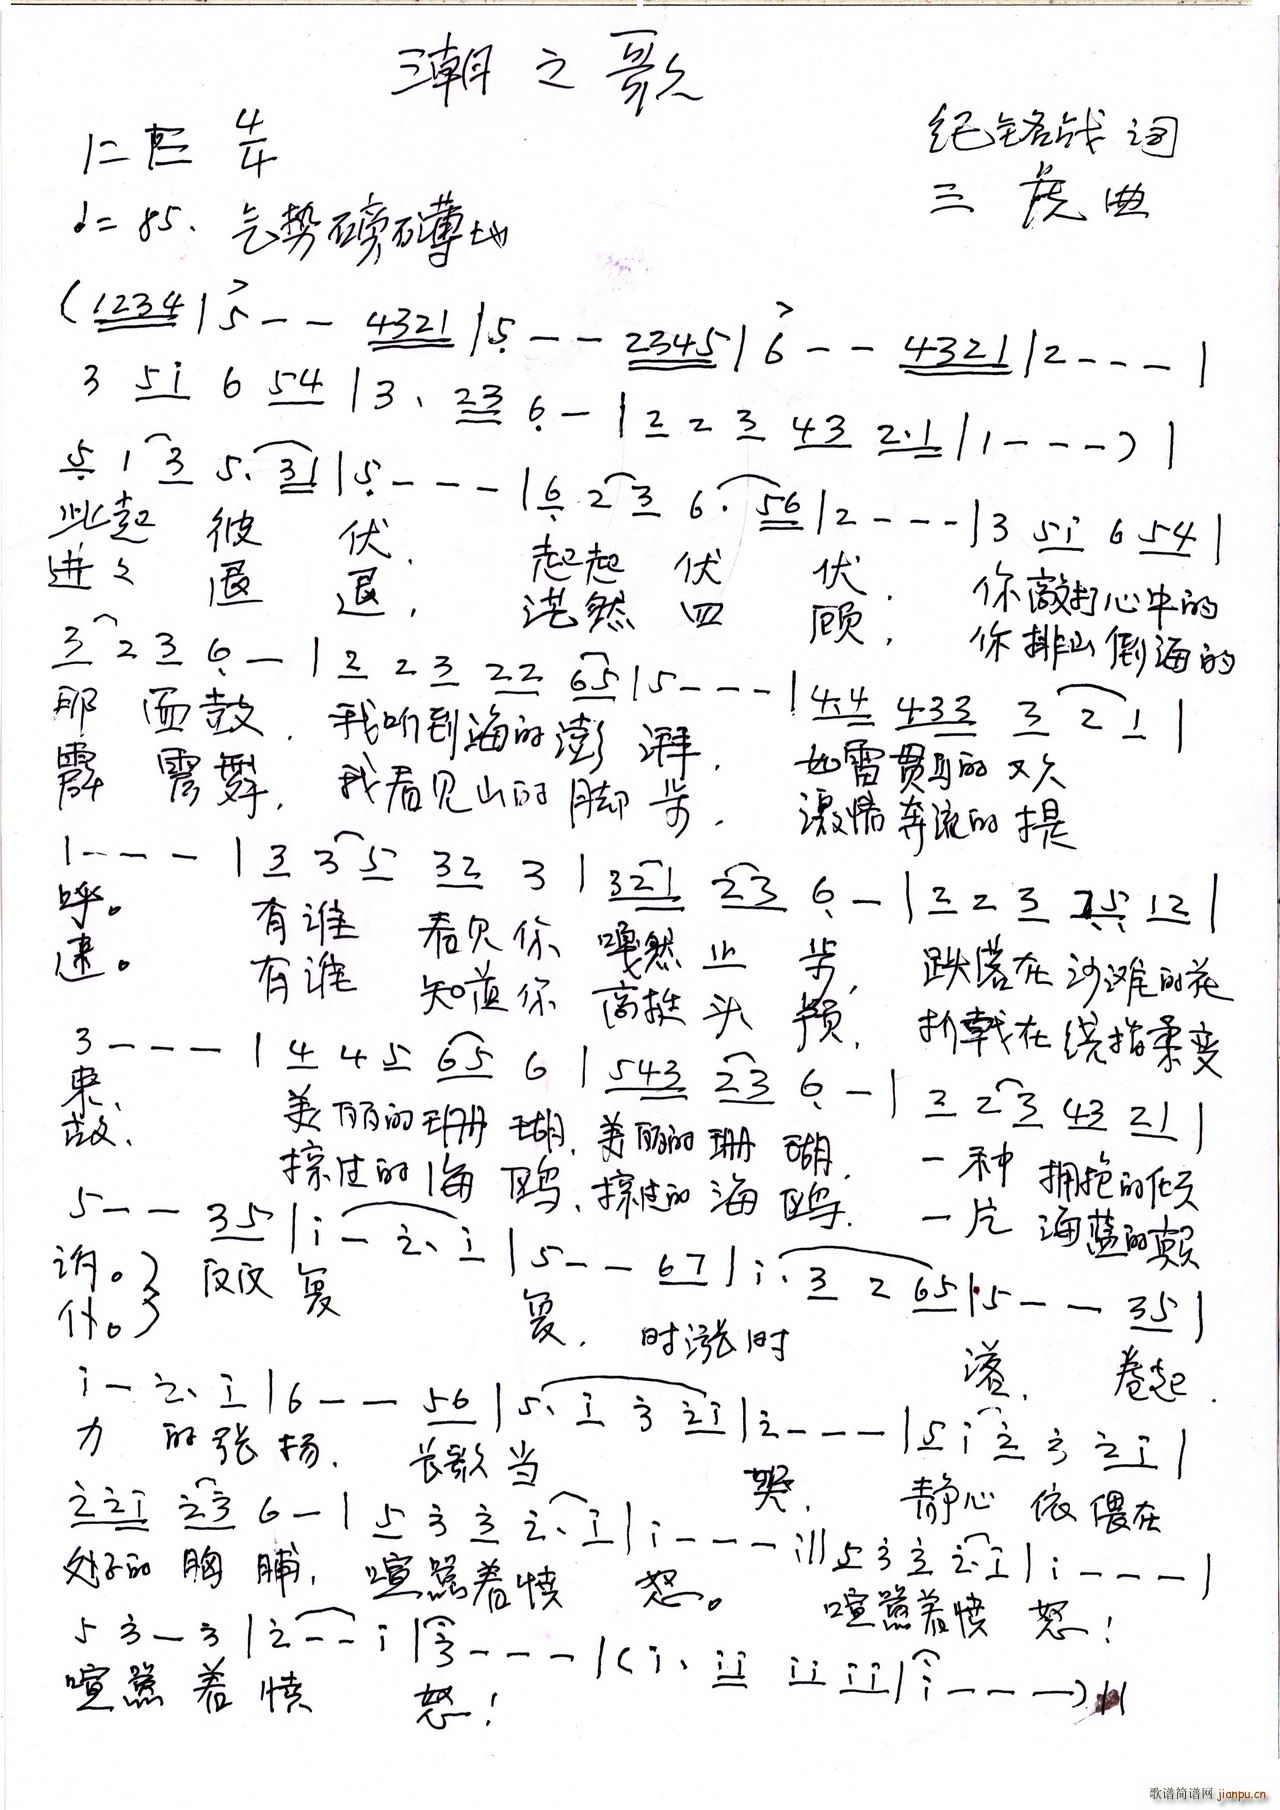 潮之歌
1=E 4/4
纪铭战词
♩=85. 气势磅礴地
三虎曲
(1234|5--4321|5--2345|6--4321|2---|
3 5i 6 54|3. 23 6-|2 2 3 43 2.1|1---)|
5 1 3 5. 31|5---|6 2 3 6. 56|2---|3 5i 6 54|
此起彼伏. 起起伏伏. 你敲打心中的
进之退退, 茫然四顾, 你排山倒海的
3 2 3 6-|2 2 3 22 65|5---|4.4 433 3 2 1|
那面鼓. 我听到海的澎湃. 如雷贯耳的欢
霹雳舞, 我看见山的脚步. 激情奔流的提
1---|3 3 5 32 3|321 23 6-|2 2 3 75 12|
呼。 有谁看见你嘎然止步, 跌落在沙滩的花
速。 有谁知道你高挺头颅, 折戟在绕指柔变
3---|4 4 5 65 6|543 23 6-|2 2 3 43 21|
束. 美丽的珊瑚, 美丽的珊瑚. 一种拥抱的倾
故. 掠过的海鸥, 掠过的海鸥. 一片海蓝的颠
5--35|i-2.i|5--67|i.3 2 65|5--35|
诉。} 反反复复. 时涨时落, 卷起
仆。}
i-2.i|6--56|5.i 3 2i|2---|5 i 2 3 2i|
力的张扬. 长歌当哭, 静心依偎在
22i 23 6-|5 3 3 2.i|i---:||5 3 3 2.i|i---|
处子的胸脯, 喧嚣着愤怒。 喧嚣着愤怒!
5 3-3|2--i|3---|(i. ii ii ii|i---)||
喧嚣着愤怒!
歌谱简谱网 jianpu.cn